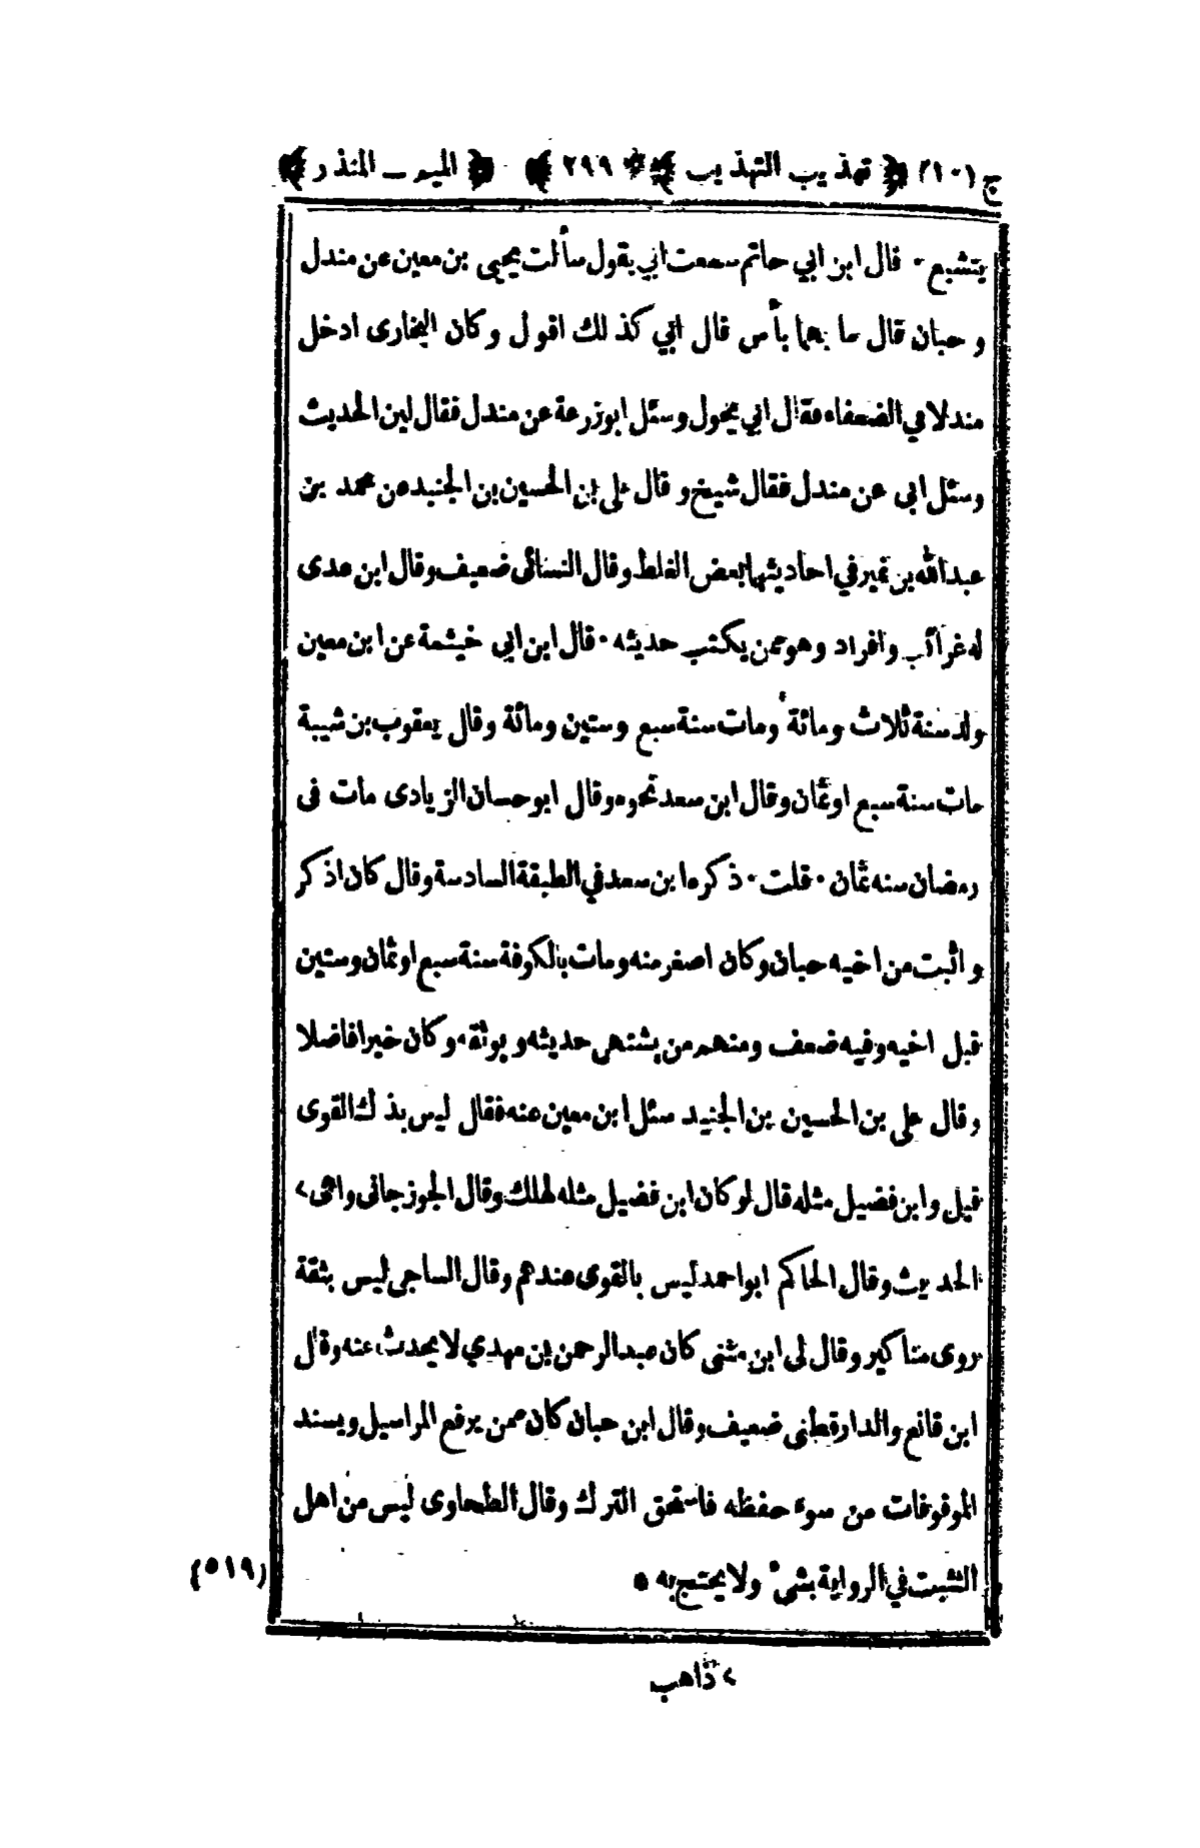 ج (١٠) ﴿ تهذيب التهذيب ﴾ * ٢٩٩ ﴾ ﴿ الميم ـ المنذر ﴾
يتشيع ٠ قال ابن ابي حاتم سمعت ابي يقول سألت يحيى بن معين عن مندل
وحبان قال ما بهما بأس قال ابي كذلك اقول وكان البخارى ادخل
مندلا في الضعفاء فقال ابي يحول وسئل ابوزرعة عن مندل فقال لين الحديث
وسئل ابى عن مندل فقال شيخ وقال علي بن الحسين بن الجنيد عن محمد بن
عبدالله بن نمير في احاديثهما بعض الغلط وقال النسائى ضعيف وقال ابن عدى
له غرائب وافراد وهو ممن يكتب حديثه ٠ قال ابن ابي خيثمة عن ابن معين
ولد سنة ثلاث ومائة ومات سنة سبع وستين ومائة وقال يعقوب بن شيبة
مات سنة سبع اوثمان وقال ابن سعد نحوه وقال ابوحسان الزيادى مات فى
رمضان سنه ثمان ٠ قلت ٠ ذكره ابن سعد في الطبقة السادسة وقال كان اذكر
واثبت من اخيه حبان وكان اصغر منه ومات بالكوفة سنة سبع اوثمان وستين
قبل اخيه وفيه ضعف ومنهم من يشتهى حديثه ويوثقه وكان خيرا فاضلا
وقال علي بن الحسين بن الجنيد سئل ابن معين عنه فقال ليس بذلك القوى
قيل وابن فضيل مثله قال لوكان ابن فضيل مثله لهلك وقال الجوزجانى واهى ٢
الحديث وقال الحاكم ابواحمد ليس بالقوى عندهم وقال الساجى ليس بثقة
روى مناكير وقال لى ابن مثنى كان عبدالرحمن بن مهدي لا يحدث عنه وقال
ابن قانع والدارقطنى ضعيف وقال ابن حبان كان ممن يرفع المراسيل ويسند
الموقوفات من سوء حفظه فاستحق الترك وقال الطحاوى ليس من اهل
التثبت في الرواية بشىء ولا يحتج به *
(٥١٩)
٢ ذاهب